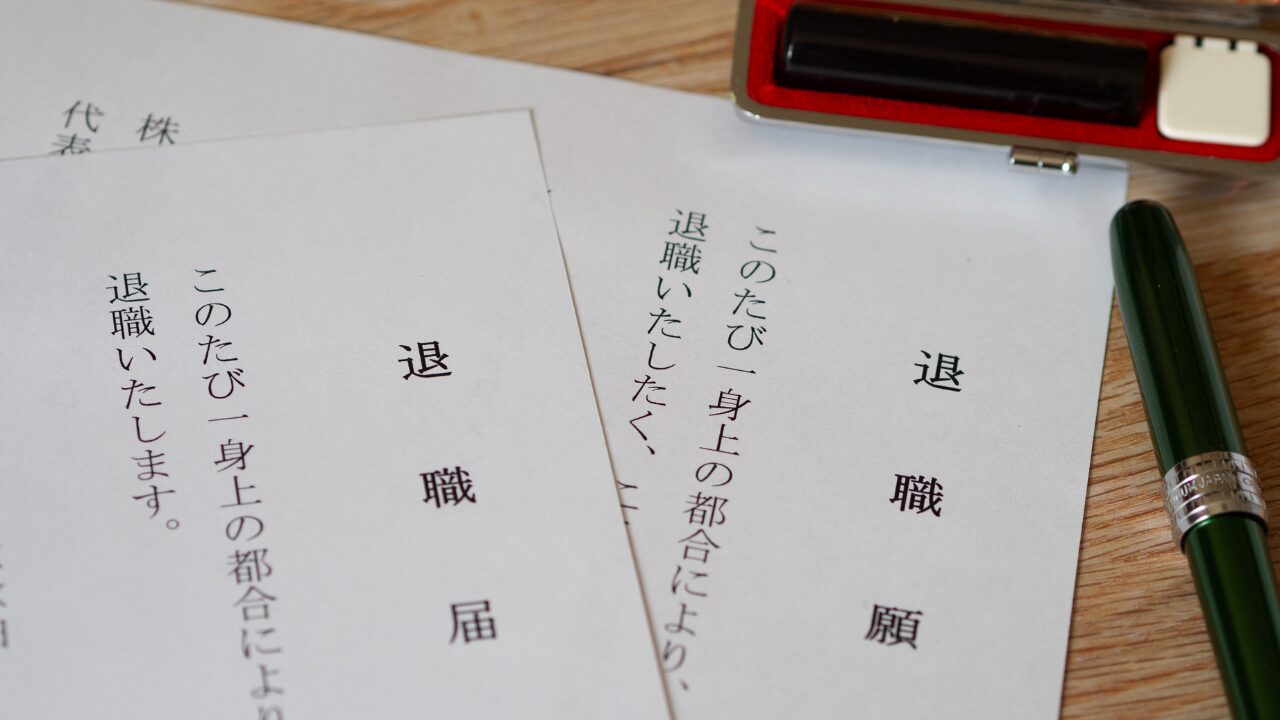 退職願
このたび一身上の都合により、
退職いたしたく、
退職届
このたび一身上の都合により
退職いたします。
株
代表